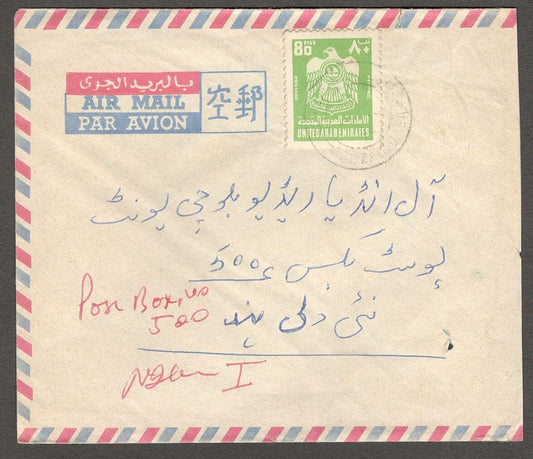 بالبريد الجوى
AIR MAIL
PAR AVION
空郵
80 FILS ٨٠ فلسا
الامارات العربية المتحدة
UNITED ARAB EMIRATES
آل انڈیا ریڈیو بلوچی یونٹ
پوسٹ بکس 500
نئی دلی ہند
Post Box, no
500
I